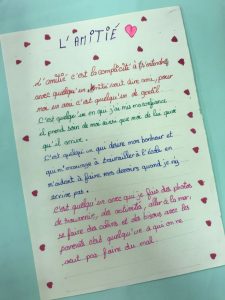 L'AMITIÉ
L'amitié c'est la complicité à
avec quelqu'un veut dire ami, pour
moi un ami c'est quelqu'un de gentil.
C'est quelqu'un en qui j'ai mis ma confiance
il prend soin de moi aussi que moi de lui quoi
qu'il arrive.
C'est quelqu'un qui désire mon bonheur et
qui m'encourage à travailler à l'école en
m'aidant à faire mes devoirs quand je n'y
arrive pas.
C'est quelqu'un avec qui je fais des photos
de souvenir, des activités, aller à la mer,
se faire des câlins et des bisous avec les
parents c'est quelqu'un à qui on ne
veut pas faire du mal.